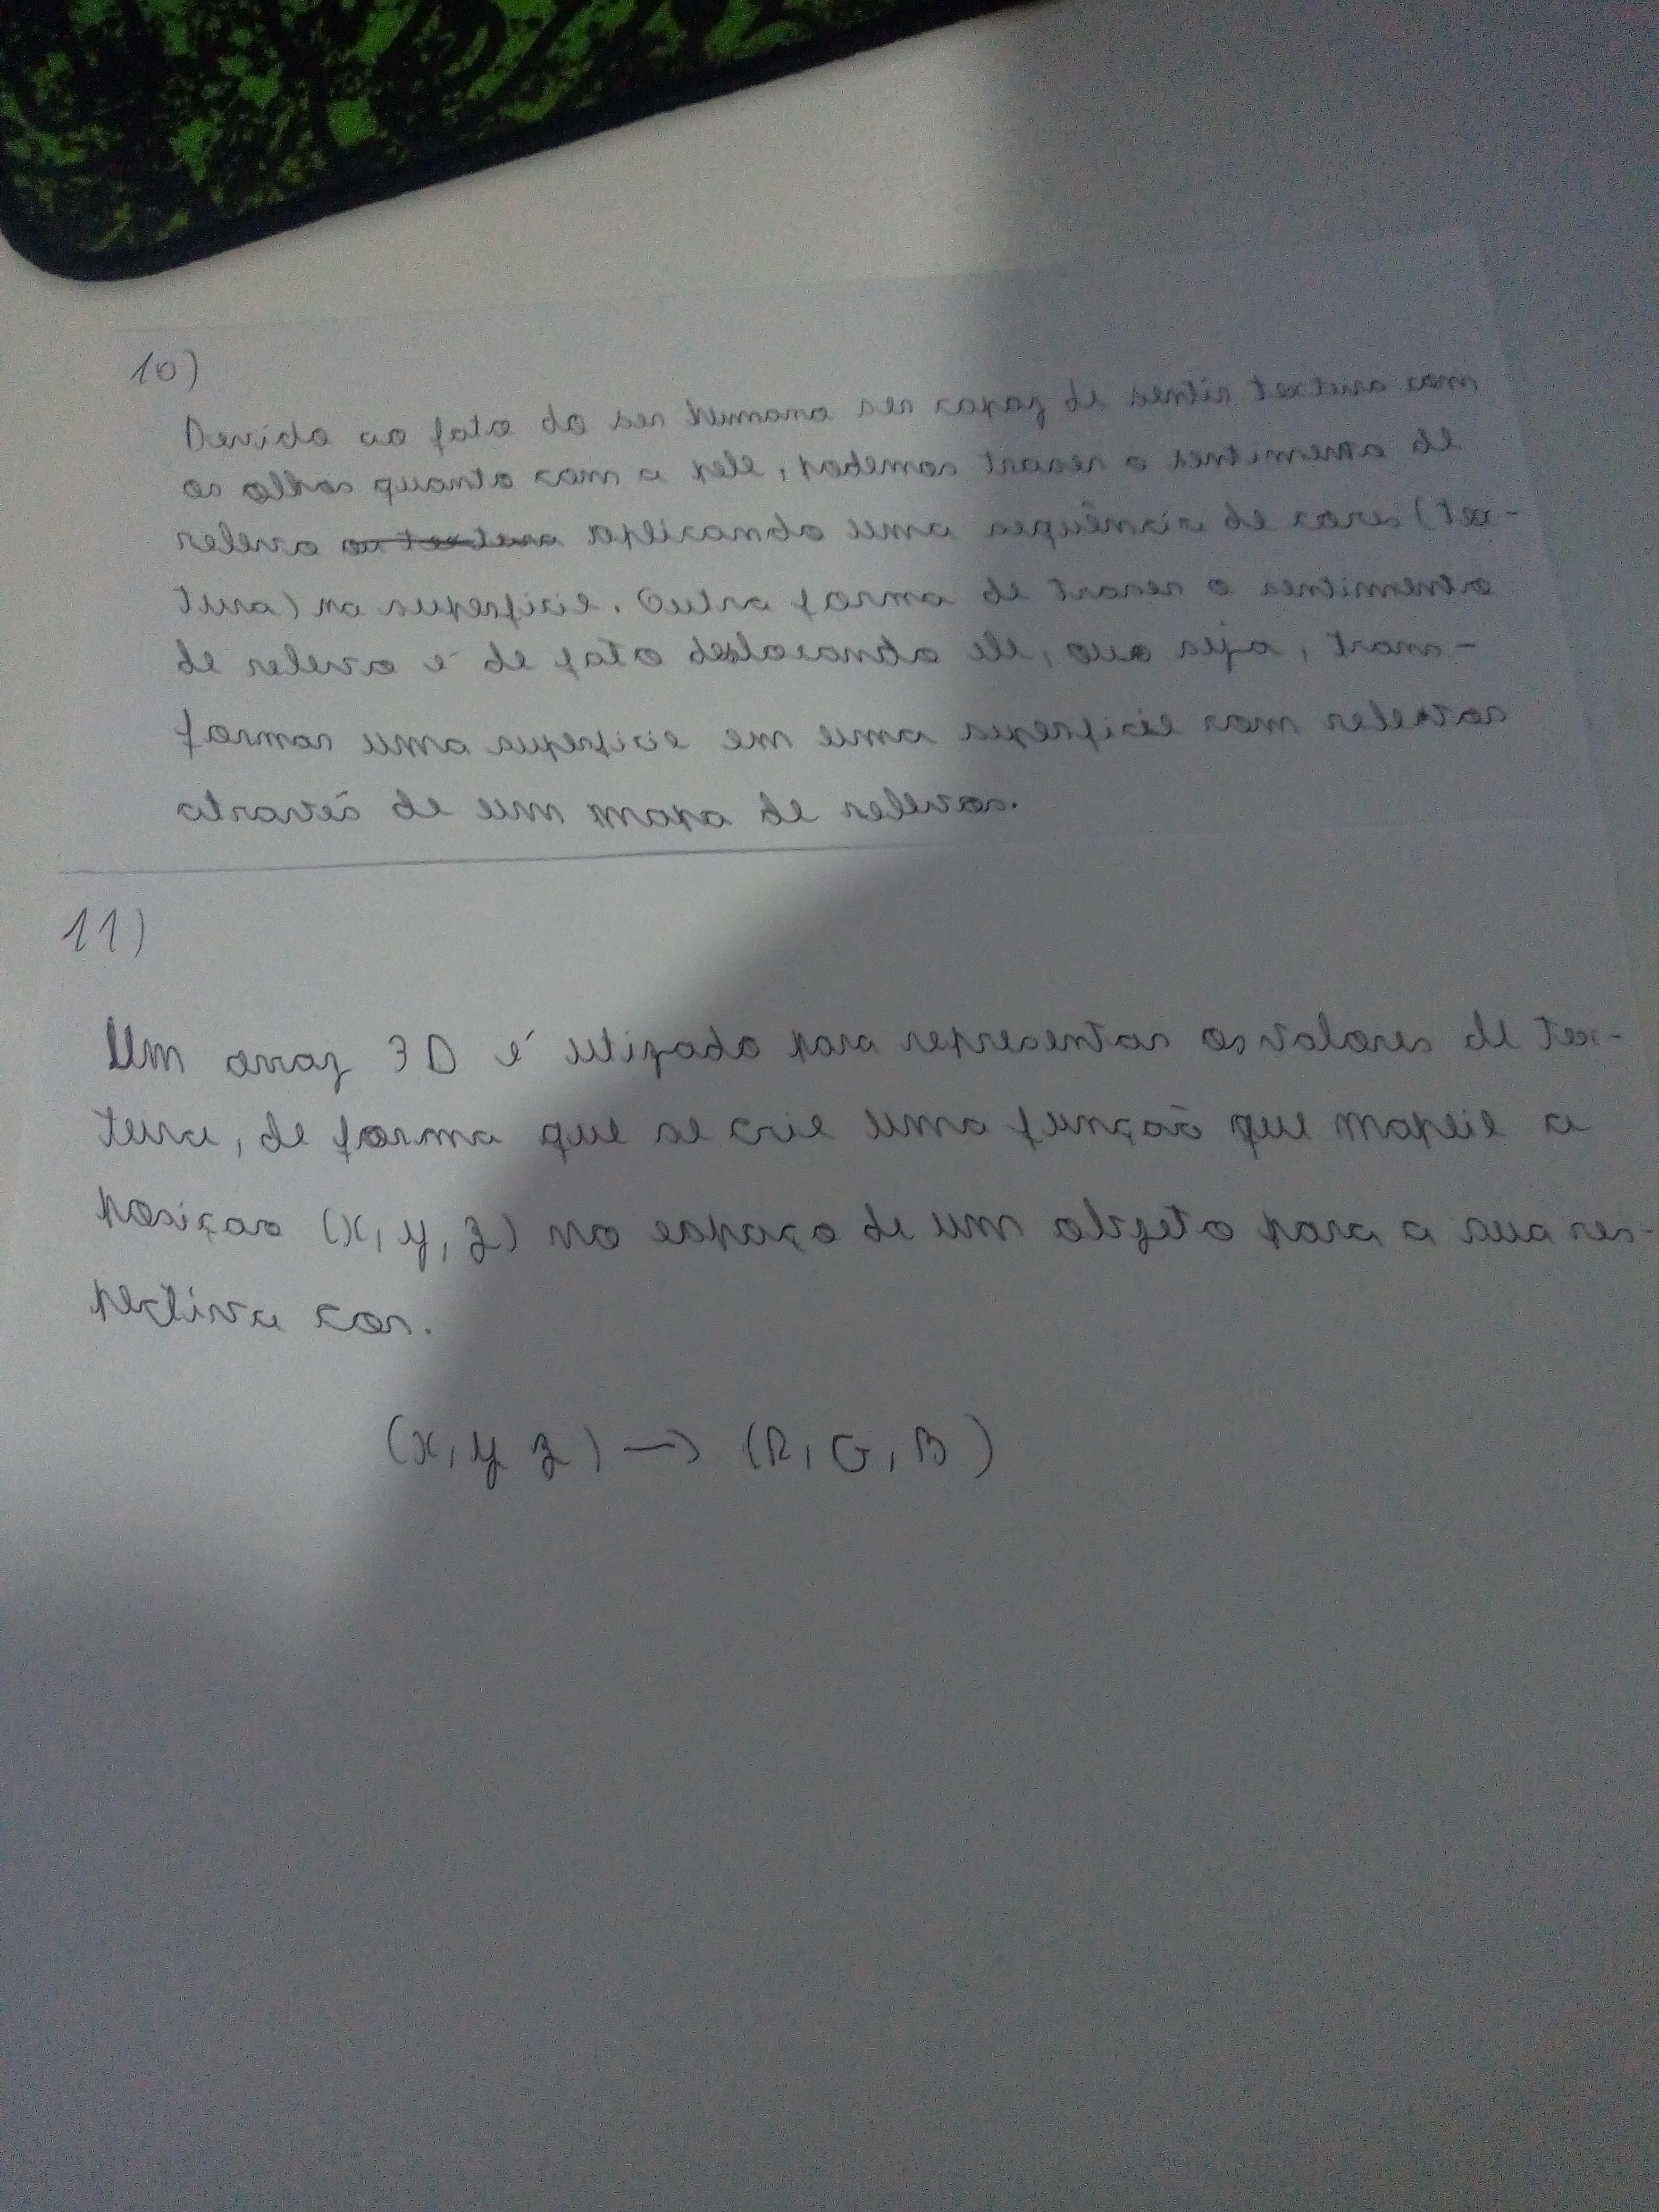 10)
Devido ao fato do ser humano ser capaz de sentir textura com
os olhos quanto com a pele, podemos trazer o sentimento de
relevo aplicando uma sequência de cores (tex-
tura) na superfície. Outra forma de trazer o sentimento
de relevo é de fato deslocando ele, ou seja, trans-
formar uma superfície em uma superfície com relevos
através de um mapa de relevos.
11)
Um array 3D é utilizado para representar os valores de tex-
tura, de forma que se crie uma função que mapeie a
posição (x, y, z) no espaço de um objeto para a sua res-
pectiva cor.
(x, y z) → (R, G, B)